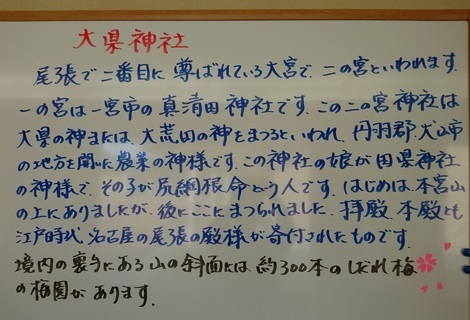 大県神社
尾張で二番目に尊ばれている大宮で、二の宮といわれます。
一の宮は一宮市の真清田神社です。この二の宮神社は
大県の神または、大荒田の神をまつるといわれ、丹羽郡、犬山市
の地方を開いた農業の神様です。この神社の娘が田県神社
の神様で、その子が尻綱根命という人です。はじめは、本宮山
の上にありましたが、後にここにまつられました。拝殿、本殿とも
江戸時代、名古屋の尾張の殿様が寄付されたものです。
境内の裏手にある山の斜面には、約300本のしだれ梅
の梅園があります。